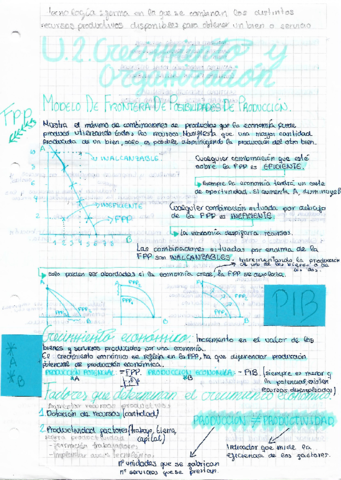 tecnología: forma en la que se combinan los distintos
recursos productivos disponibles para obtener un bien o servicio
U.2. Crecimiento y
Organización
MODELO DE FRONTERA DE POSIBILIDADES DE PRODUCCIÓN.
FPP
Muestra el máximo de combinaciones de productos que la economía puede
producir utilizando todos los recursos. Manifiesta que una mayor cantidad
producida de un bien, solo es posible disminuyendo la producción del otro bien.
INALCANZABLE.
Cualquier combinación que esté
sobre la FPP es EFICIENTE.
siempre la economía tendrá un coste
de oportunidad. Si aumenta A, disminuye B
INEFICIENTE
FPP
Cualquier combinación situada por debajo
de la FPP es INEFICIENTE.
La economía desperdicia recursos.
Las combinaciones situadas por encima de la
FPP son INALCANZABLES.
incrementando la producción
de uno de los bienes o de
los dos.
solo pueden ser abordadas si la economía crece, la FPP se desplaza.
FPP1
FPP2
PIB
Crecimiento económico: Incremento en el valor de los
bienes y servicios producidos por una economía.
El crecimiento económico se refleja en la FPP, hay que diferenciar producción
potencial de producción económica.
PRODUCCIÓN POTENCIAL - FPP.
PRODUCCIÓN ECONÓMICA - PIB.
(siempre es menor q
la potencial, existen
recursos desempleados)
*A
*B
Factores que determinan el crecimiento económico
1. Dotación de recursos (cantidad)
2. Productividad factores (trabajo, tierra,
capital)
PRODUCCIÓN ≠ PRODUCTIVIDAD
nº unidades que se fabrican
nº servicios que se prestan.
Indicador que mide la
eficiencia de los factores.